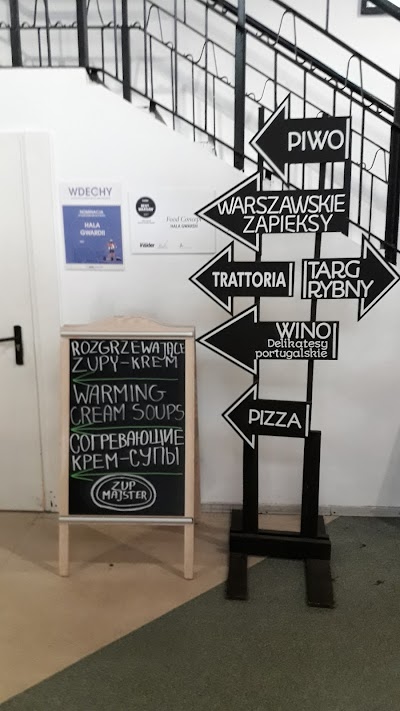 PIWO
WARSZAWSKIE
ZAPIEKSY
TRATTORIA
TARG
RYBNY
WINO
Delikatesy
portugalskie
PIZZA
WDECHY
HALA
GWARDII
Food Concept
HALA GWARDII
Insider
ROZGRZEWAJĄCE
ZUPY-KREM
WARMING
CREAM SOUPS
СОГРЕВАЮЩИЕ
КРЕМ-СУПЫ
ZUP
MAJSTER